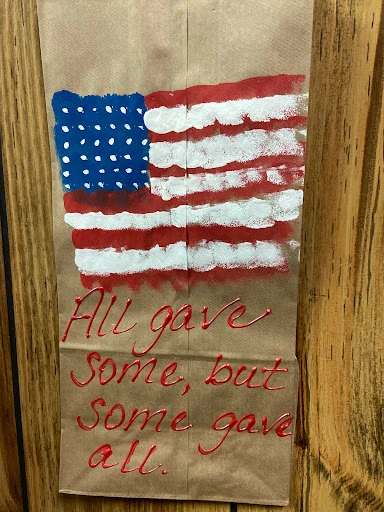 All gave
some, but
some gave
all.